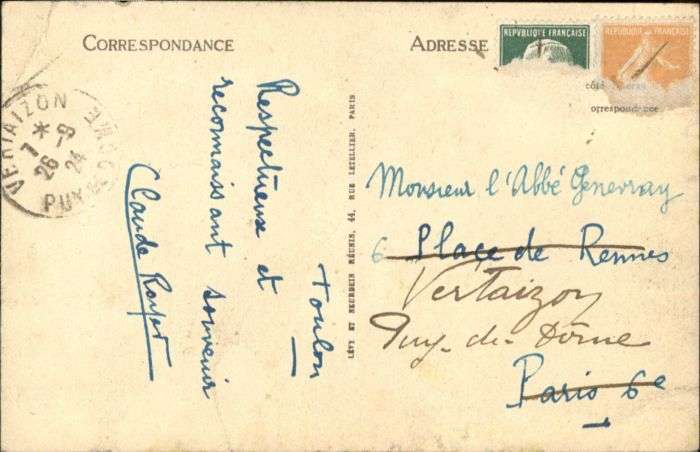 CORRESPONDANCE
ADRESSE
REPVBLIQVE FRANÇAISE
REPUBLIQUE FRANÇAISE
côté
orrespondance
VERTAIZON
* 
7 -9
26 24
PUY DE DOME
Toulon
Respectueuse et
reconnaissant souvenir
Claude Royet
LÉVY ET NEURDEIN RÉUNIS, 44, RUE LETELLIER, PARIS
Monsieur l'Abbé Genevray
6 Place de Rennes
Vertaizon
Puy-de-Dôme
Paris 6e